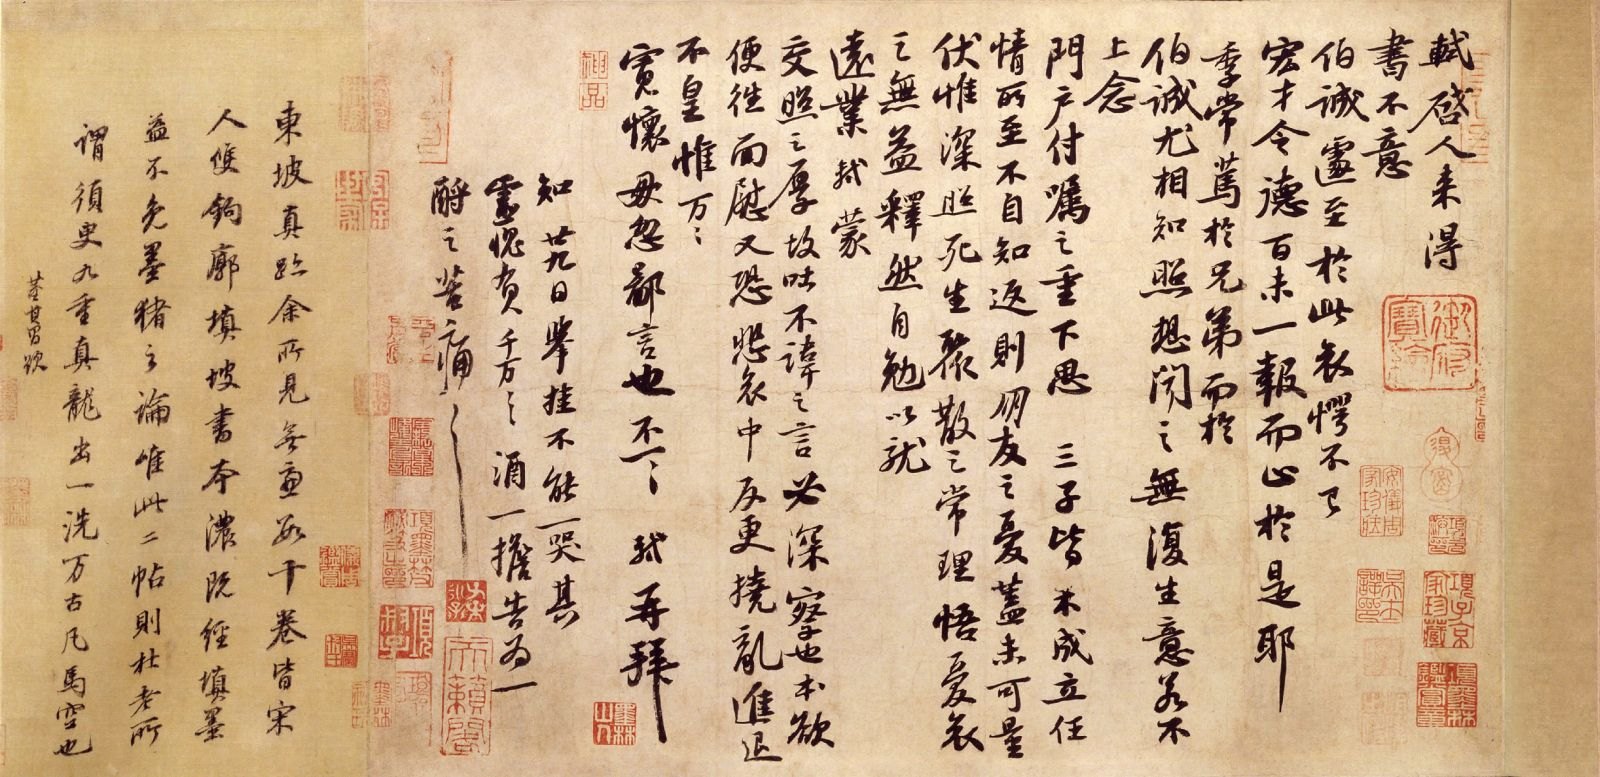 軾啓人来得
書不意
伯誠遽至於此哀愕不已
宏才令德百未一報而止於是耶
季常篤於兄弟而於
伯誠尤相知照想聞之無復生意若不
上念
門户付囑之重下思三子皆未成立任
情所至不自知返則朋友之憂蓋未可量
伏惟深照死生聚散之常理悟憂哀
之無益釋然自勉以就
遠業軾蒙
交照之厚故吐不諱之言必深察也本欲
便往面慰又恐悲哀中反更撓亂進退
不皇惟万〻
寬懷毋忽鄙言也不一〻軾再拜
知廿九日舉掛不能一哭其
靈愧負千万〻酒一擔告為一
酹之苦痛〻
東坡真跡余所見無慮數十卷皆宋
人雙鉤廓填坡書本濃既經填墨
益不免墨豬之論唯此二帖則杜老所
謂須臾九重真龍出一洗万古凡馬空也
董其昌跋
神品
御府寶繪
項子京家珍藏
項墨林鑑賞章
安儀周家珍藏
墨林山人
天籟閣